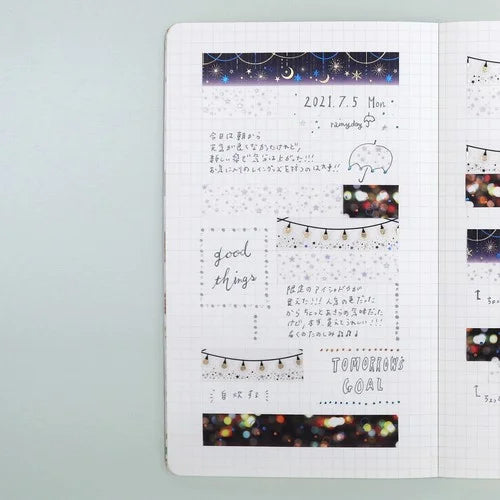 2021.7.5 Mon
rainy day
今日は朝から
天気が良くなかったけれど,
新しい傘で気分は上がった!!!
お気に入りのレイングッズを持つのは大事!!
good
things
限定のアイシャドウが
買えた!!! 人気の色だった
からちょっとあきらめ気味だった
けど, まず, 買えてうれしい!!!
たのしみ
TOMORROW'S
GOAL
自炊する